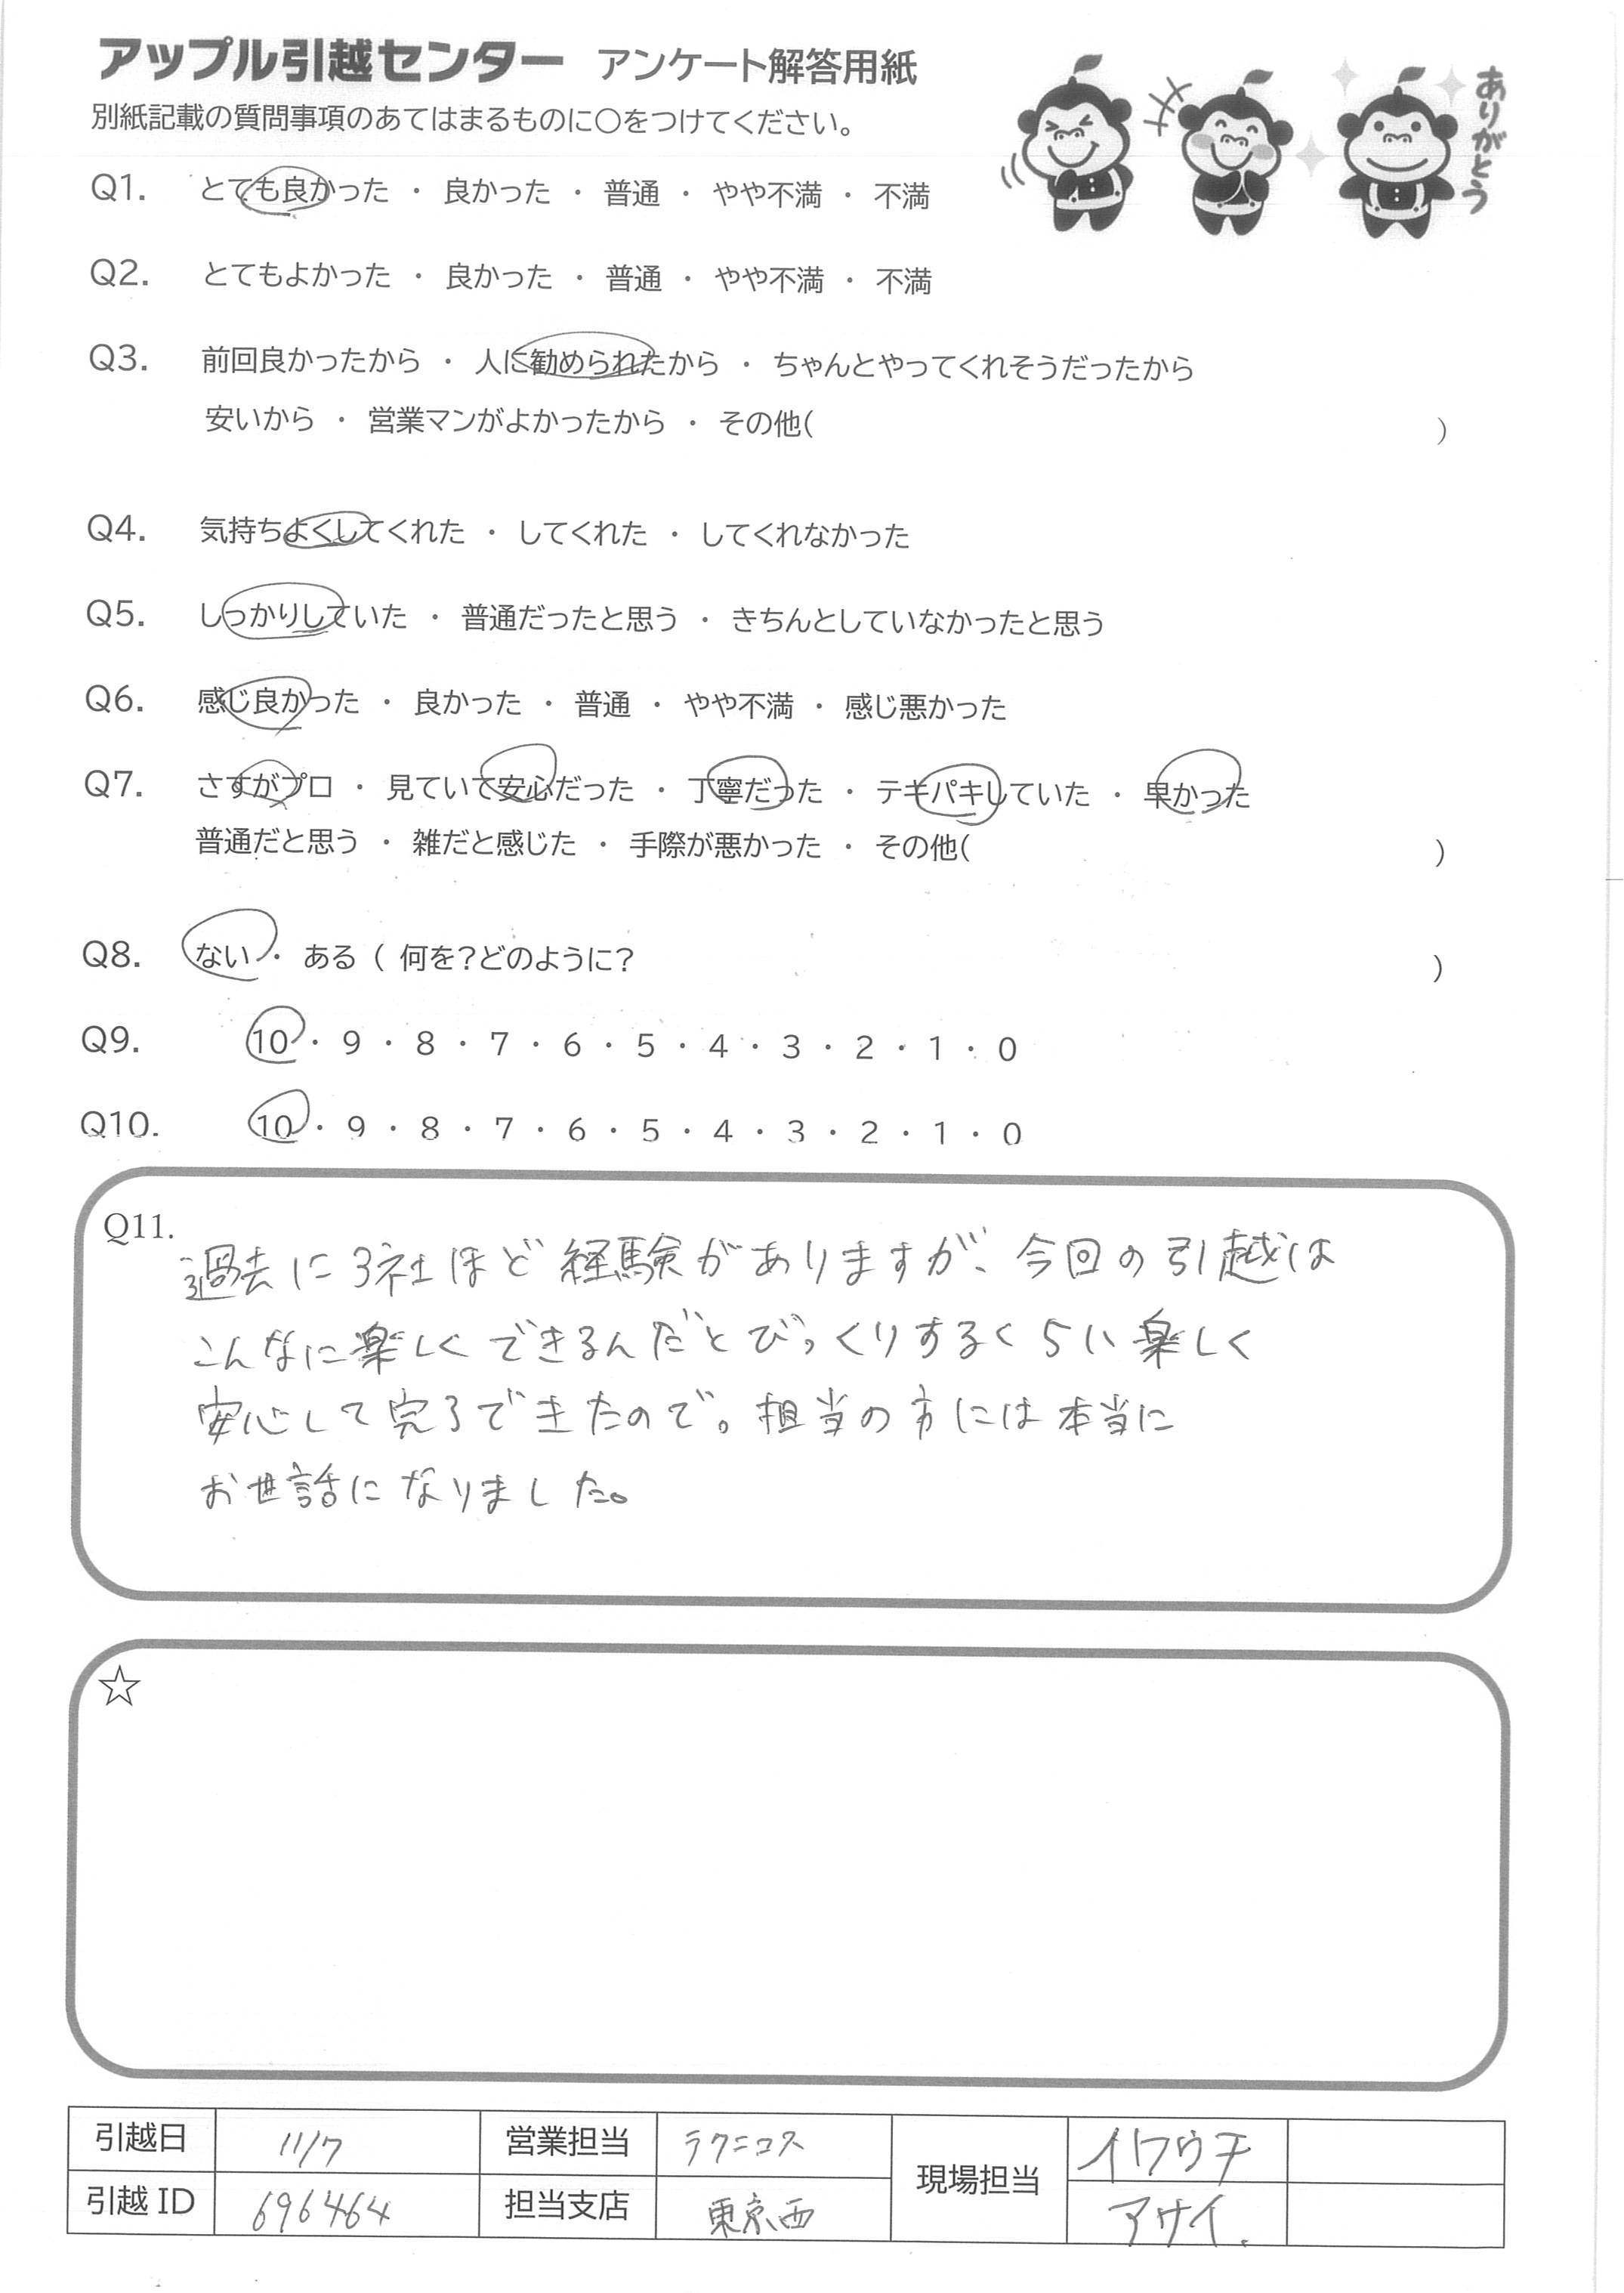 アップル引越センター アンケート解答用紙
別紙記載の質問事項のあてはまるものに○をつけてください。
ありがとう
Q1. とても良かった ・ 良かった ・ 普通 ・ やや不満 ・ 不満
Q2. とてもよかった ・ 良かった ・ 普通 ・ やや不満 ・ 不満
Q3. 前回良かったから ・ 人に勧められたから ・ ちゃんとやってくれそうだったから
安いから ・ 営業マンがよかったから ・ その他( )
Q4. 気持ちよくしてくれた ・ してくれた ・ してくれなかった
Q5. しっかりしていた ・ 普通だったと思う ・ きちんとしていなかったと思う
Q6. 感じ良かった ・ 良かった ・ 普通 ・ やや不満 ・ 感じ悪かった
Q7. さすがプロ ・ 見ていて安心だった ・ 丁寧だった ・ テキパキしていた ・ 早かった
普通だと思う ・ 雑だと感じた ・ 手際が悪かった ・ その他( )
Q8. ない ・ ある ( 何を?どのように? )
Q9. 10 ・ 9 ・ 8 ・ 7 ・ 6 ・ 5 ・ 4 ・ 3 ・ 2 ・ 1 ・ 0
Q10. 10 ・ 9 ・ 8 ・ 7 ・ 6 ・ 5 ・ 4 ・ 3 ・ 2 ・ 1 ・ 0
Q11.
過去に3社ほど経験がありますが、今回の引越は
こんなに楽しくできるんだとびっくりするくらい楽しく
安心して完了できたので。担当の方には本当に
お世話になりました。
☆
引越日 11/7 営業担当 テクニコス 現場担当 イワウチ
引越 ID 696464 担当支店 東京西 アサイ.